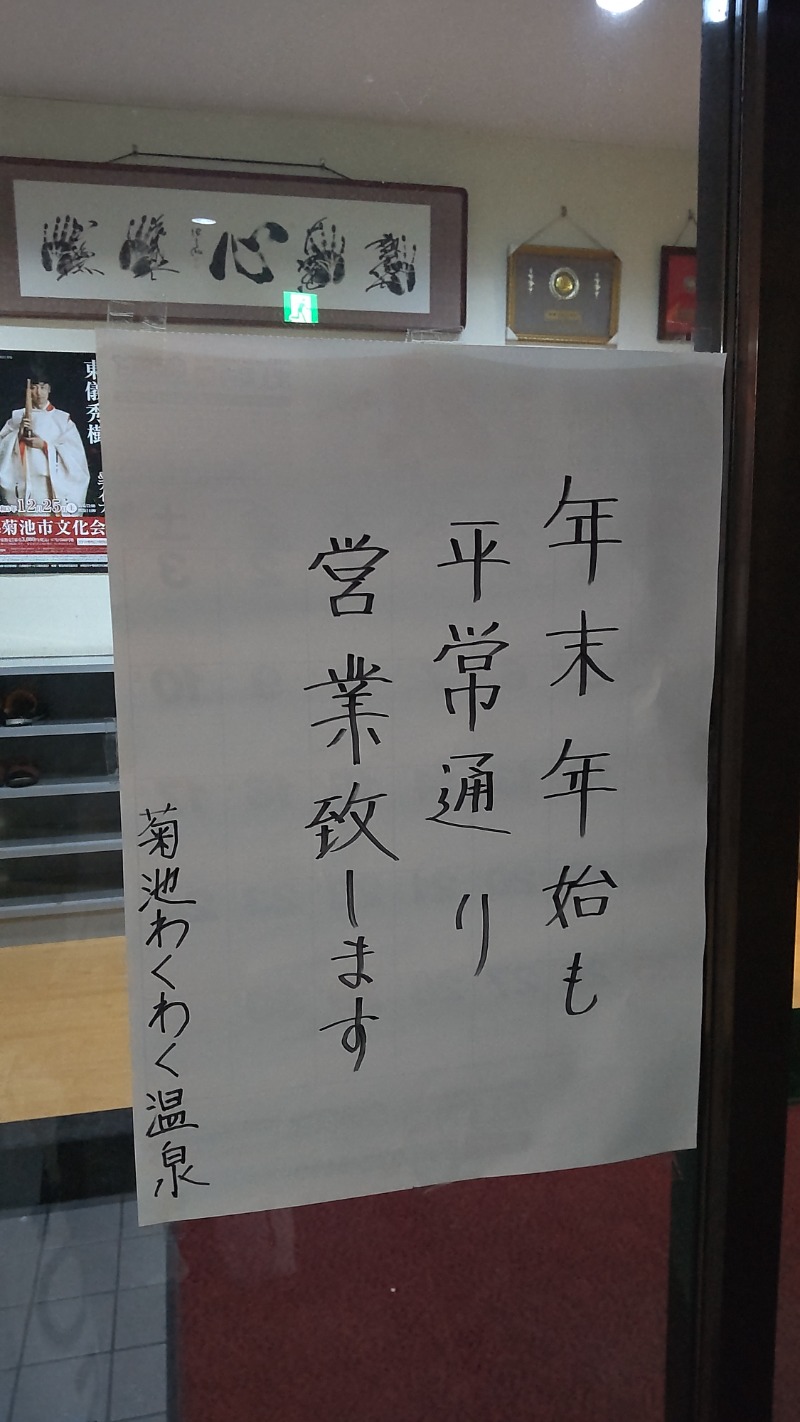 年末年始も
平常通り
営業致します
菊池わくわく温泉
心
東儀秀樹
12月25日
菊池市文化会